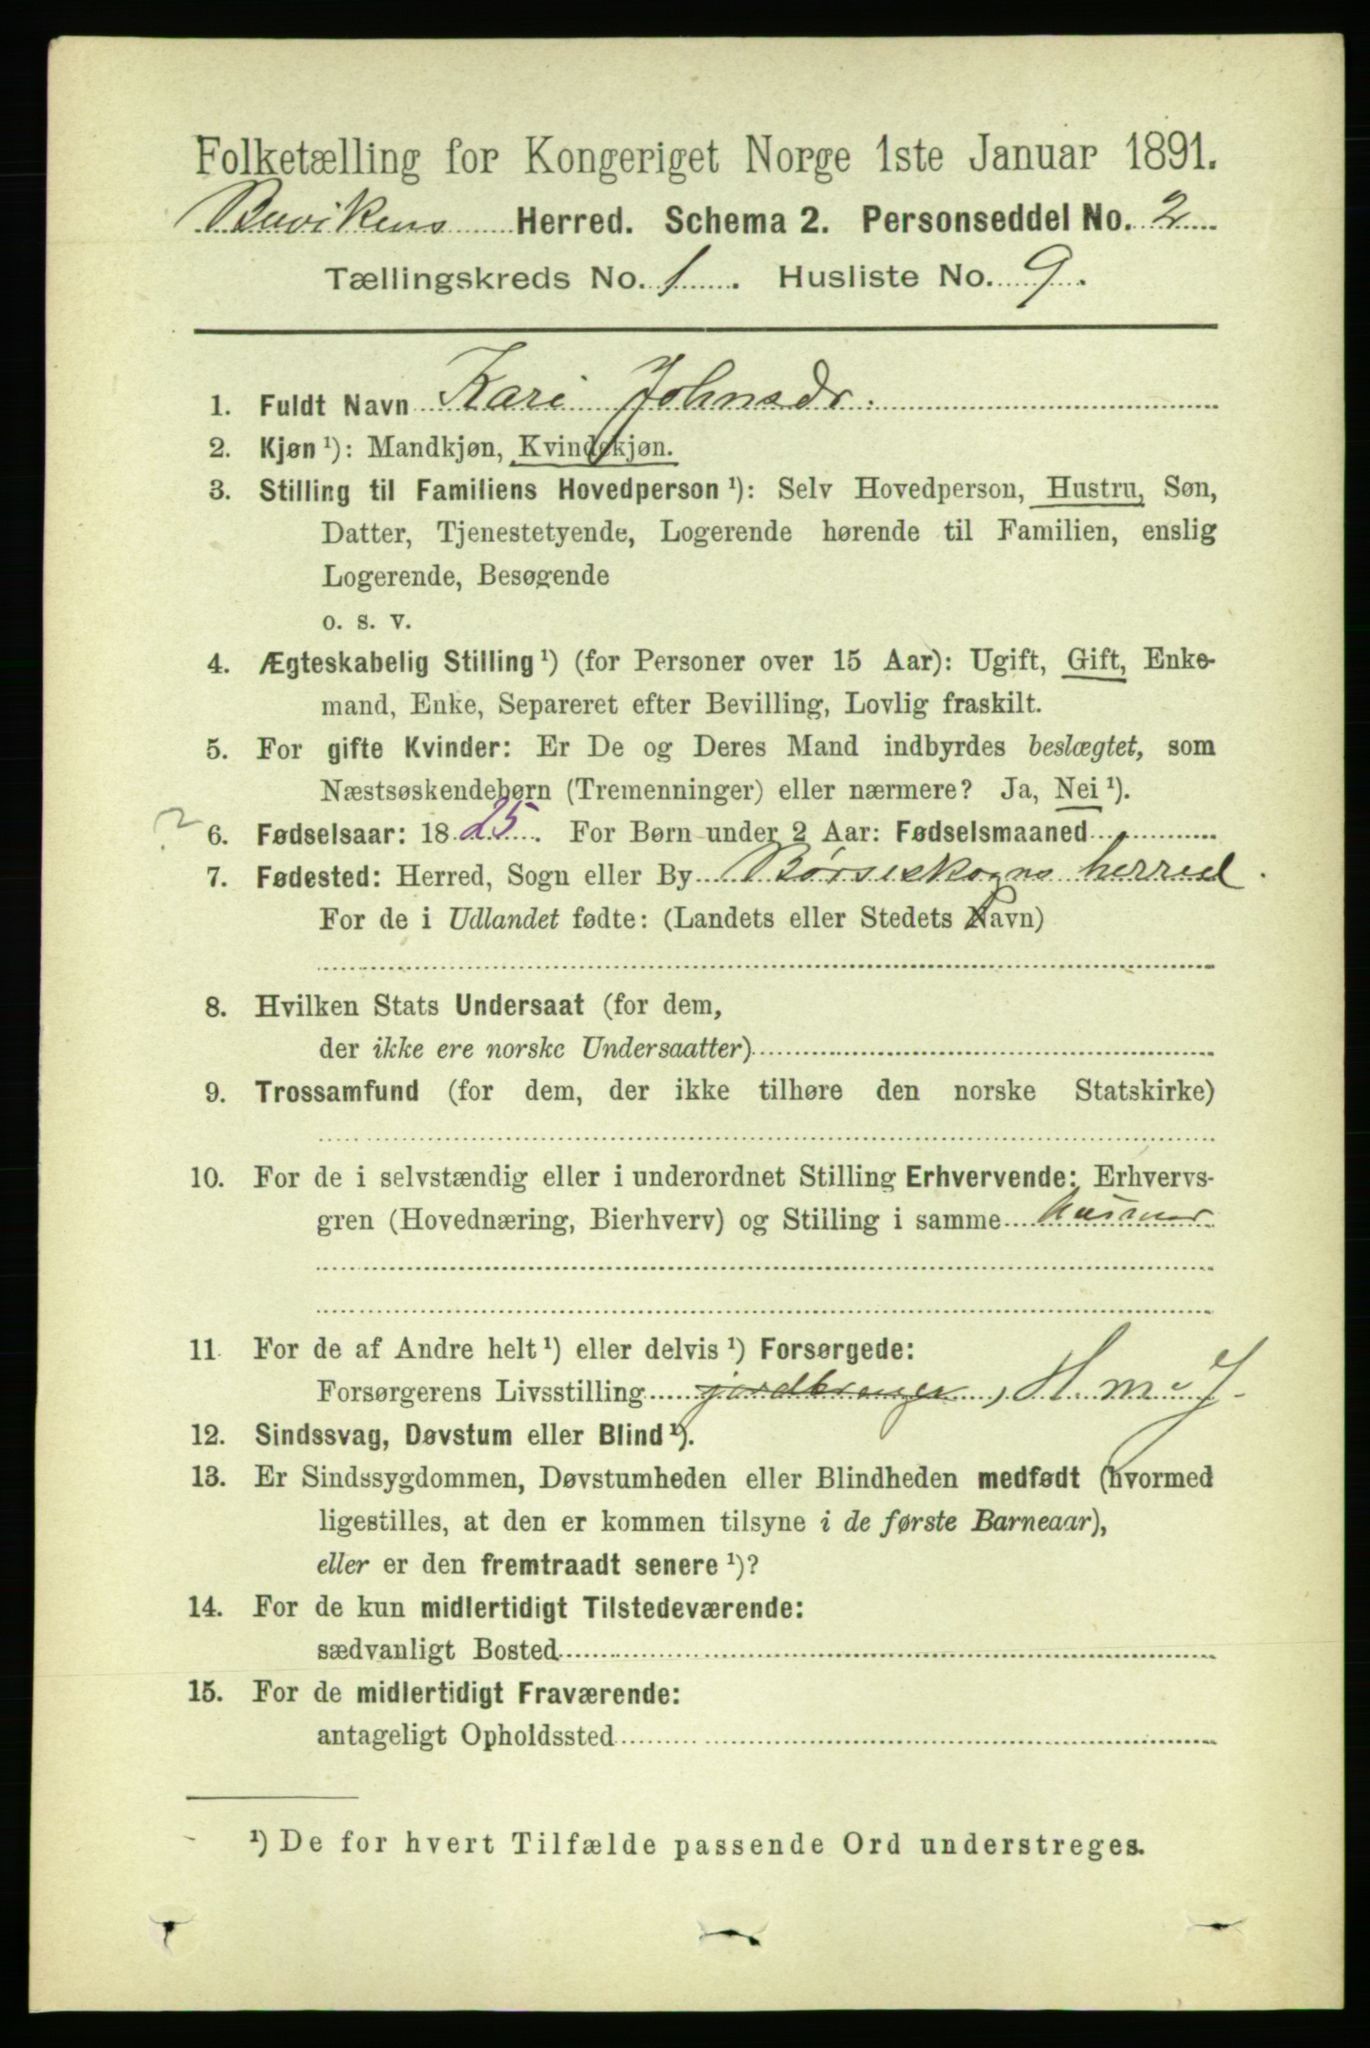 Folketælling for Kongeriget Norge 1ste Januar 1891.
Buvikens Herred. Schema 2. Personseddel No. 2
Tællingskreds No. 1. Husliste No. 9.
1. Fuldt Navn Kari Johnsdr.
2. Kjøn ¹): Mandkjøn, Kvindekjøn.
3. Stilling til Familiens Hovedperson ¹): Selv Hovedperson, Hustru, Søn,
Datter, Tjenestetyende, Logerende hørende til Familien, enslig
Logerende, Besøgende
o. s. v.
4. Ægteskabelig Stilling ¹) (for Personer over 15 Aar): Ugift, Gift, Enke-
mand, Enke, Separeret efter Bevilling, Lovlig fraskilt.
5. For gifte Kvinder: Er De og Deres Mand indbyrdes beslægtet, som
Næstsøskendebørn (Tremenninger) eller nærmere? Ja, Nei ¹).
? 6. Fødselsaar: 1825. For Børn under 2 Aar: Fødselsmaaned
7. Fødested: Herred, Sogn eller By Børseskogns herred.
For de i Udlandet fødte: (Landets eller Stedets Navn)
8. Hvilken Stats Undersaat (for dem,
der ikke ere norske Undersaatter)
9. Trossamfund (for dem, der ikke tilhøre den norske Statskirke)
10. For de i selvstændig eller i underordnet Stilling Erhvervende: Erhvervs-
gren (Hovednæring, Bierhverv) og Stilling i samme
11. For de af Andre helt ¹) eller delvis ¹) Forsørgede:
Forsørgerens Livsstilling jordbruger, H m J
12. Sindssvag, Døvstum eller Blind ¹).
13. Er Sindssygdommen, Døvstumheden eller Blindheden medfødt (hvormed
ligestilles, at den er kommen tilsyne i de første Barneaar),
eller er den fremtraadt senere ¹)?
14. For de kun midlertidigt Tilstedeværende:
sædvanligt Bosted
15. For de midlertidigt Fraværende:
antageligt Opholdssted
¹) De for hvert Tilfælde passende Ord understreges.